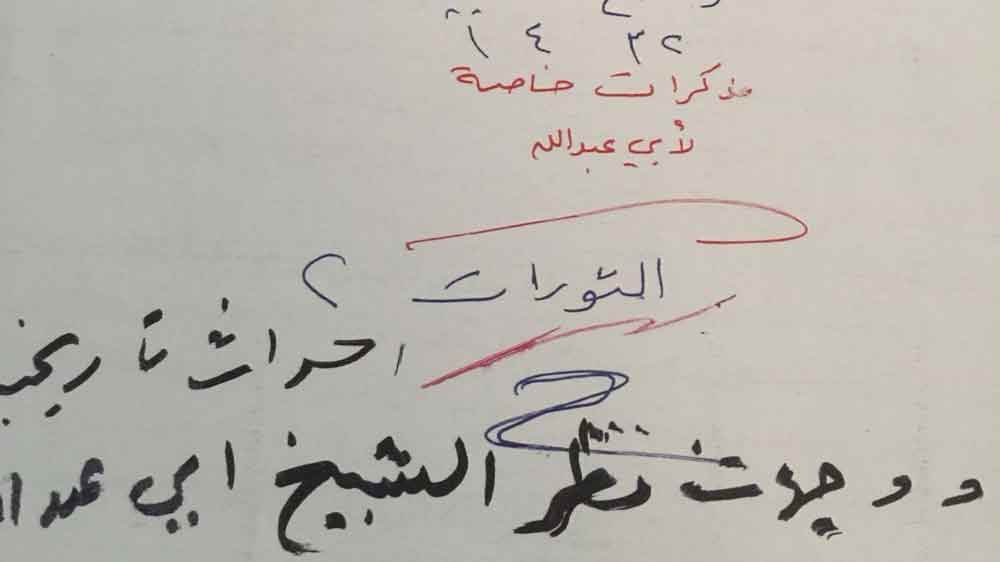 ٢ ٣ ٤ ١
مذكرات خاصة
لأبي عبدالله
الثورات ٢
احداث تاريخية
ووجهات نظر الشيخ ابي عبدا